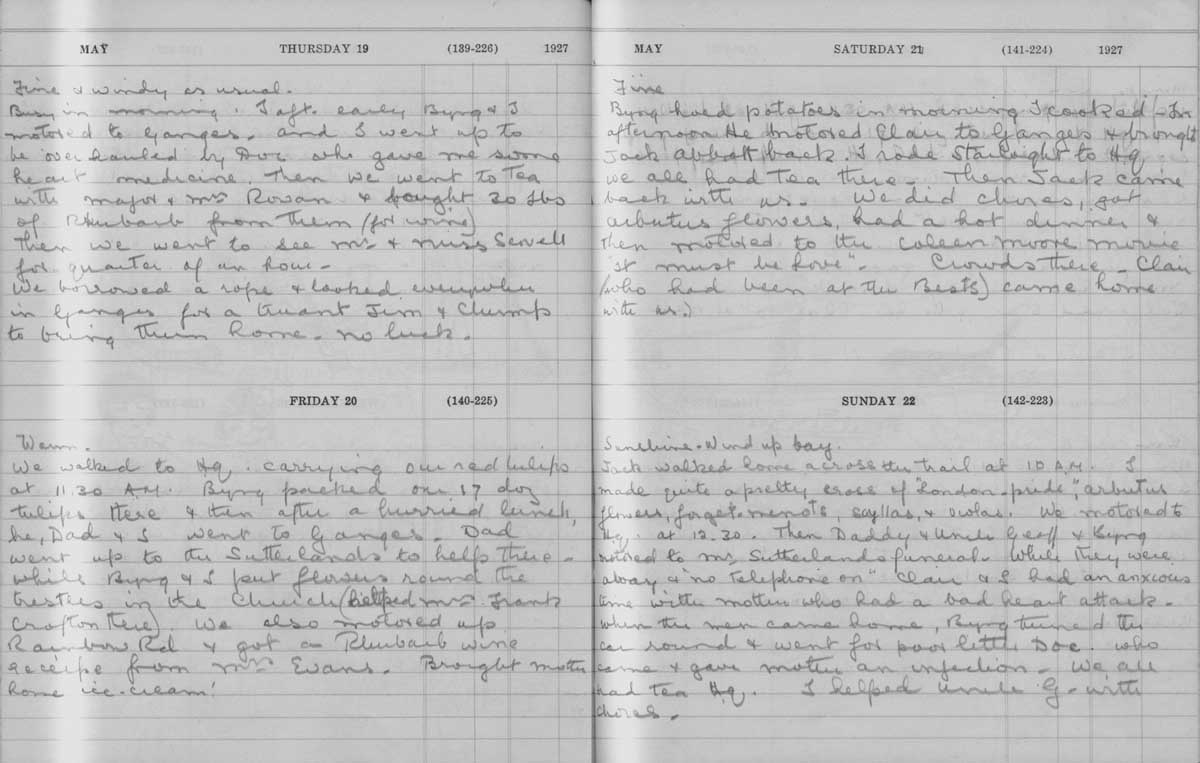 MAY THURSDAY 19 (139-226) 1927
Fine & windy as usual.
Busy in morning. I aft. early Byng & I
motored to Ganges. and I went up to
be overhauled by Doc who gave me some
heart medicine. Then we went to Tea
with major & mrs Rowan & bought 20 lbs
of Rhubarb from them (for wine)
Then we went to see mrs & miss Scovell
for quarter of an hour -
We borrowed a rope & looked everywhere
in Ganges for a truant Jim & Clump
to bring them home - no luck.
FRIDAY 20 (140-225)
Warm.
We walked to Hq. carrying our red tulips
at 11.30 A.M. Byng packed our 17 doz
tulips there & then after a hurried lunch,
he, Dad & I went to Ganges. Dad
went up to the Sutherlands to help there -
while Byng & I put flowers round the
trestles in the Church (helped mrs Frank
Crofton there). We also motored up
Rainbow Rd & got a Rhubarb wine
receipe from mrs Evans. Brought mother
home ice-cream!
MAY SATURDAY 21 (141-224) 1927
Fine
Byng hoed potatoes in morning I cooked - In
afternoon He motored Clair to Ganges & brought
Jack Abbott back. I rode Starlight to Hq
we all had Tea there - Then Jack came
back with us. We did chores, got
arbutus flowers, had a hot dinner &
then motored to the Coleen moore movie
"it must be love" - Crowds there - Clair
(who had been at the Bests) came home
with us.)
SUNDAY 22 (142-223)
Sunshine - Wind up bay.
Jack walked home across the trail at 10 A.M. I
made quite a pretty cross of "London-pride", arbutus
flowers, forget-menots, scyllas, & violas. We motored to
Hq. at 12.30. Then Daddy & Uncle Geoff & Byng
motored to mrs Sutherlands funeral - While they were
away & "no telephone on" Clair & I had an anxious
time with mother who had a bad heart attack -
when the men came home, Byng turned the
car round & went for poor little Doc. who
came & gave mother an injection - We all
had tea Hq. I helped Uncle G- with
chores -